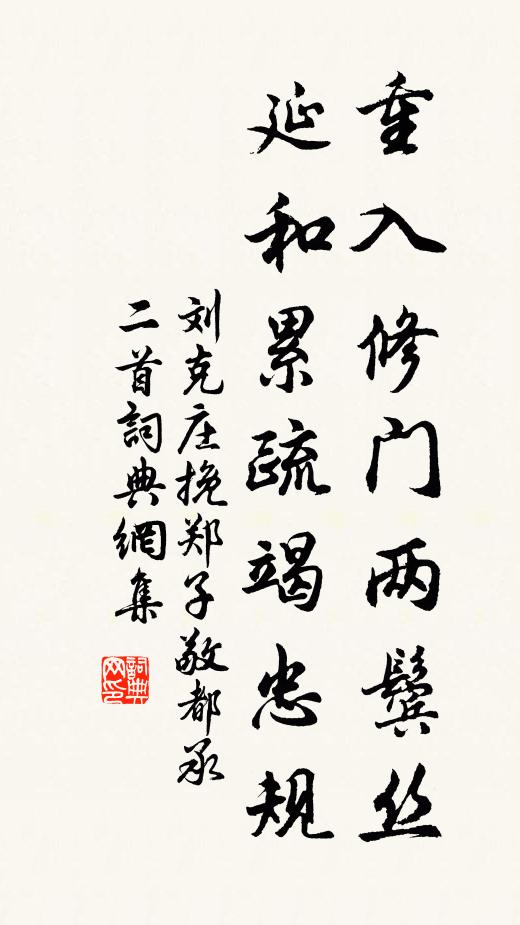 重入修门两鬓丝
延和累疏竭忠规
刘克庄挽郑子敬都承
二首詞典網集
詞典
网印